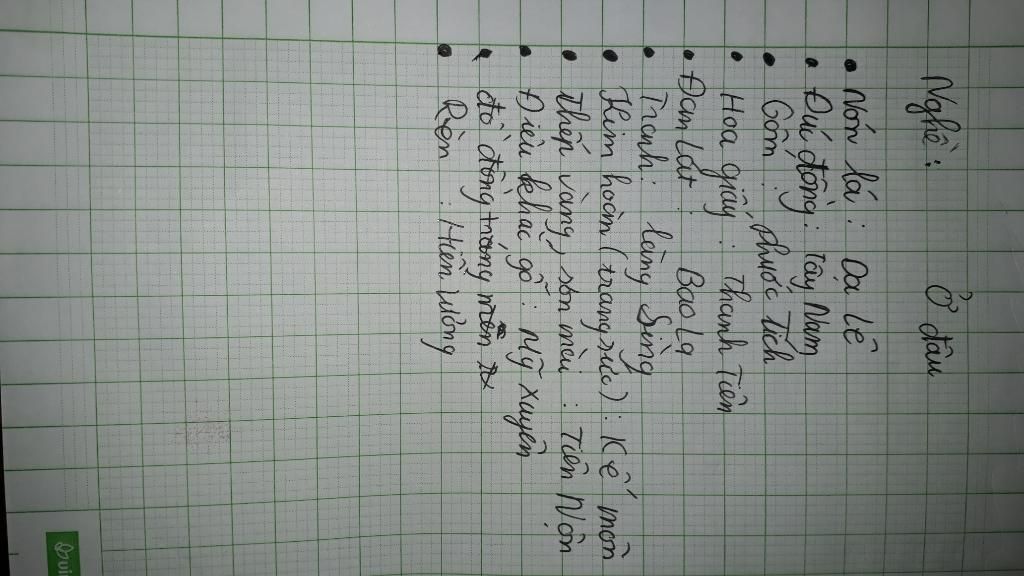 Nghề: Ở đâu
Nón lá: Dạ Lê
Đúc đồng: Tây Nam
Gốm: Phước Tích
Hoa giấy: Thanh Tiên
Đan lát: Bao La
Tranh: làng Sình
Kim hoàn (trang sức): Kế môn
thếp vàng, sơn mài: Tiên Nộn
Điêu khắc gỗ: Mỹ Xuyên
đồ đồng tráng men
Rèn: Hiền Lương